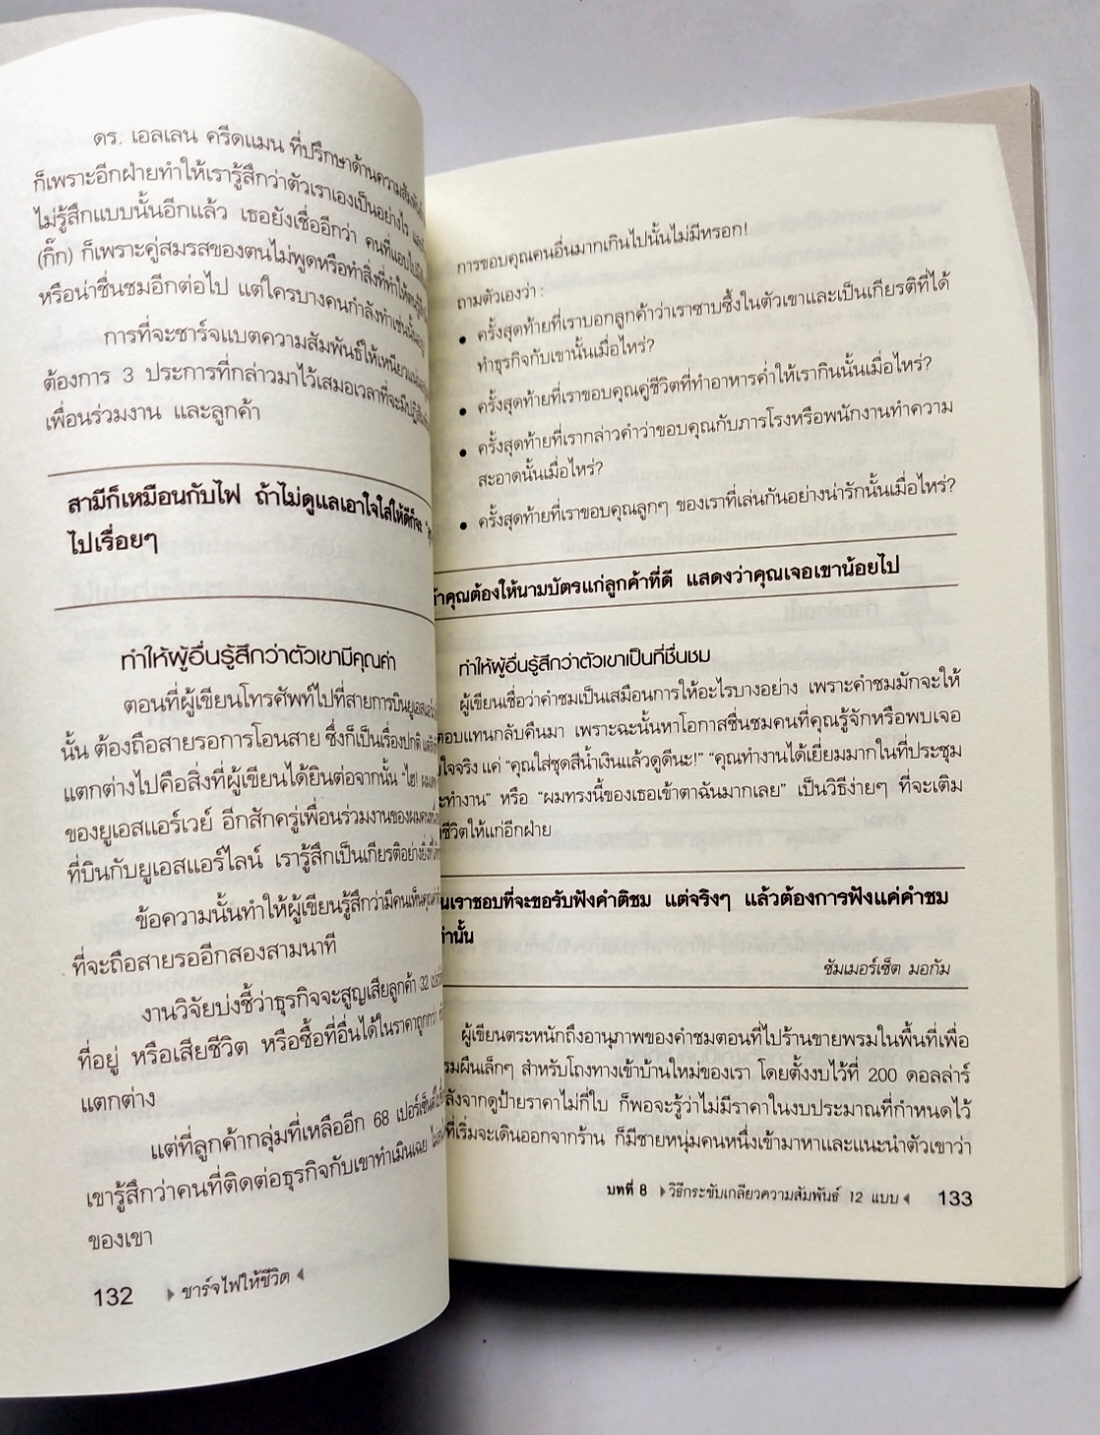 ดร. เอลเลน ครีดแมน ที่ปรึกษาด้านความสัมพันธ์
ก็เพราะอีกฝ่ายทำให้เรารู้สึกว่าตัวเราเองเป็นอย่างไร
ไม่รู้สึกแบบนั้นอีกแล้ว เธอยังเชื่ออีกว่า คนที่แอบไปมี
(กิ๊ก) ก็เพราะคู่สมรสของตนไม่พูดหรือทำสิ่งที่ทำให้ตนรู้สึก
หรือน่าชื่นชมอีกต่อไป แต่ใครบางคนกำลังทำเช่นนั้น
การที่จะชาร์จแบตความสัมพันธ์ให้เหนียวแน่น
ต้องการ 3 ประการที่กล่าวมาไว้เสมอเวลาที่จะมีปฏิสัมพันธ์
เพื่อนร่วมงาน และลูกค้า
สามีก็เหมือนกับไฟ ถ้าไม่ดูแลเอาใจใส่ให้ดีก็จะ
ไปเรื่อยๆ
ทำให้ผู้อื่นรู้สึกว่าตัวเขามีคุณค่า
ตอนที่ผู้เขียนโทรศัพท์ไปที่สายการบินยูเอสแอร์
นั้น ต้องถือสายรอการโอนสาย ซึ่งก็เป็นเรื่องปกติ
แตกต่างไปคือสิ่งที่ผู้เขียนได้ยินต่อจากนั้น "ไฮ! ผม
ของยูเอสแอร์เวย์ อีกสักครู่เพื่อนร่วมงานของผมคนหนึ่ง
ที่บินกับยูเอสแอร์ไลน์ เรารู้สึกเป็นเกียรติอย่างยิ่งที่ได้
ข้อความนั้นทำให้ผู้เขียนรู้สึกว่ามีคนเห็นคุณค่า
ที่จะถือสายรออีกสองสามนาที
งานวิจัยบ่งชี้ว่าธุรกิจจะสูญเสียลูกค้า 32
ที่อยู่ หรือเสียชีวิต หรือซื้อที่อื่นได้ในราคาถูกกว่า
แตกต่าง
แต่ที่ลูกค้ากลุ่มที่เหลืออีก 68 เปอร์เซ็นต์
เขารู้สึกว่าคนที่ติดต่อธุรกิจกับเขาทำเมินเฉย
ของเขา
132 ชาร์จไฟให้ชีวิต
การขอบคุณคนอื่นมากเกินไปนั้นไม่มีหรอก!
ถามตัวเองว่า :
• ครั้งสุดท้ายที่เราบอกลูกค้าว่าเราซาบซึ้งในตัวเขาและเป็นเกียรติที่ได้
ทำธุรกิจกับเขานั้นเมื่อไหร่?
• ครั้งสุดท้ายที่เราขอบคุณคู่ชีวิตที่ทำอาหารค่ำให้เรากินนั้นเมื่อไหร่?
• ครั้งสุดท้ายที่เรากล่าวคำว่าขอบคุณกับภารโรงหรือพนักงานทำความ
สะอาดนั้นเมื่อไหร่?
• ครั้งสุดท้ายที่เราขอบคุณลูกๆ ของเราที่เล่นกันอย่างน่ารักนั้นเมื่อไหร่?
ถ้าคุณต้องให้นามบัตรแก่ลูกค้าที่ดี แสดงว่าคุณเจอเขาน้อยไป
ทำให้ผู้อื่นรู้สึกว่าตัวเขาเป็นที่ชื่นชม
ผู้เขียนเชื่อว่าคำชมเป็นเสมือนการให้อะไรบางอย่าง เพราะคำชมมักจะให้
ตอบแทนกลับคืนมา เพราะฉะนั้นหาโอกาสชื่นชมคนที่คุณรู้จักหรือพบเจอ
ใจจริง แค่ "คุณใส่ชุดสีน้ำเงินแล้วดูดีนะ!" "คุณทำงานได้เยี่ยมมากในที่ประชุม
ะทำงาน" หรือ "ผมทรงนี้ของเธอเข้าตาฉันมากเลย" เป็นวิธีง่ายๆ ที่จะเติม
ชีวิตให้แก่อีกฝ่าย
นเราชอบที่จะขอรับฟังคำติชม แต่จริงๆ แล้วต้องการฟังแค่คำชม
ท่านั้น
ซัมเมอร์เซ็ต มอกัม
ผู้เขียนตระหนักถึงอานุภาพของคำชมตอนที่ไปร้านขายพรมในพื้นที่เพื่อ
รมผืนเล็กๆ สำหรับโถงทางเข้าบ้านใหม่ของเรา โดยตั้งงบไว้ที่ 200 ดอลล่าร์
ลังจากดูป้ายราคาไม่กี่ใบ ก็พอจะรู้ว่าไม่มีราคาในงบประมาณที่กำหนดไว้
ที่เริ่มจะเดินออกจากร้าน ก็มีชายหนุ่มคนหนึ่งเข้ามาหาและแนะนำตัวเขาว่า
บทที่ 8 วิธีกระชับเกลียวความสัมพันธ์ 12 แบบ 133